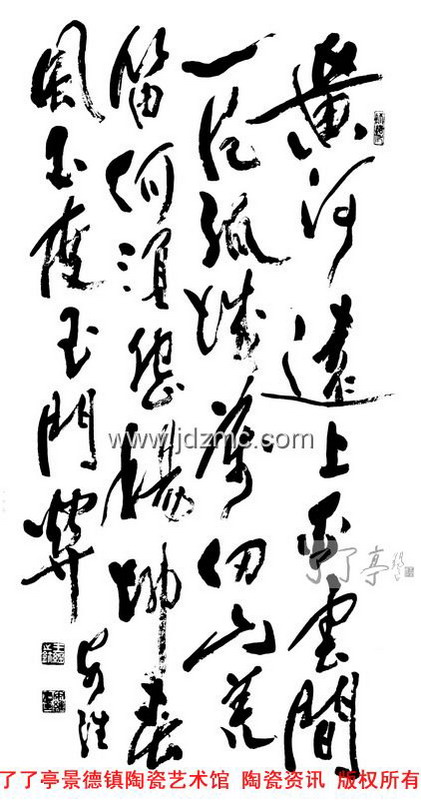 黃河遠上白雲間
一片孤城萬仞山羌
笛何須怨楊柳春
風不度玉門關
www.jdzmc.com
了了亭
了了亭景德镇陶瓷艺术馆 陶瓷资讯 版权所有